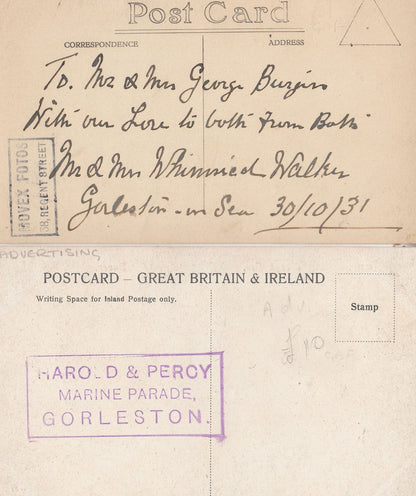 Post Card
CORRESPONDENCE ADDRESS
To. Mr & Mrs George Burgin
With our Love to both from Both
Mr & Mrs Whimnied Walker
Gorleston-on Sea 30/10/31
MOVEX FOTOS
38, REGENT STREET
ADVERTISING
POSTCARD – GREAT BRITAIN & IRELAND
Writing Space for Inland Postage only.
Stamp
Adv
£10
HAROLD & PERCY
MARINE PARADE,
GORLESTON.